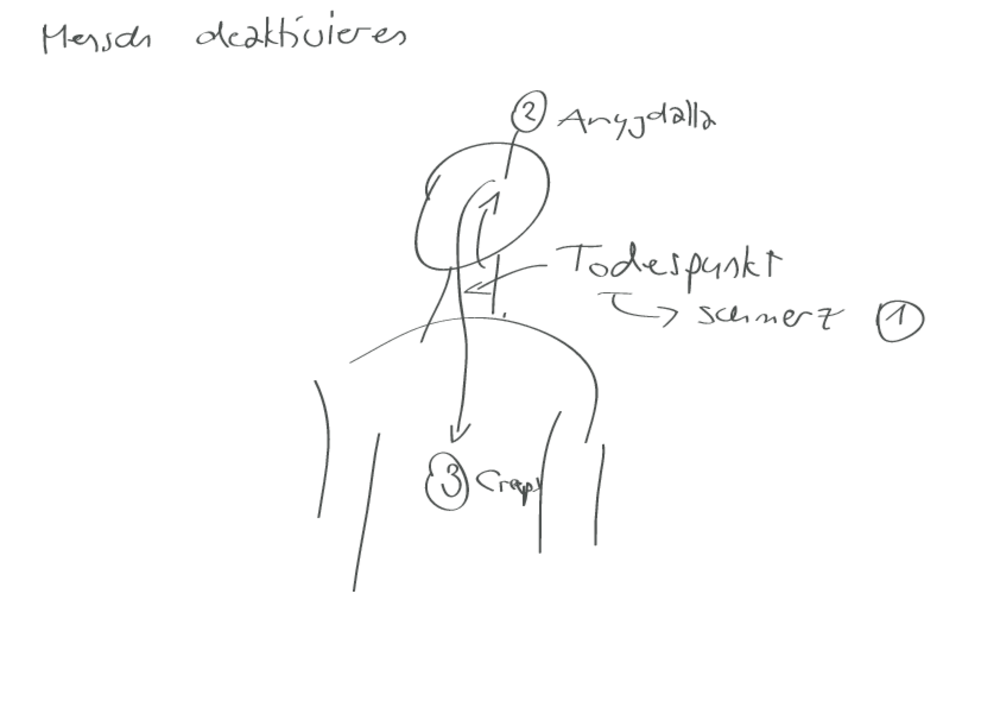 Mensch deaktivieren
② Amygdalla
Todespunkt
↳ schmerz ①
③ Creps